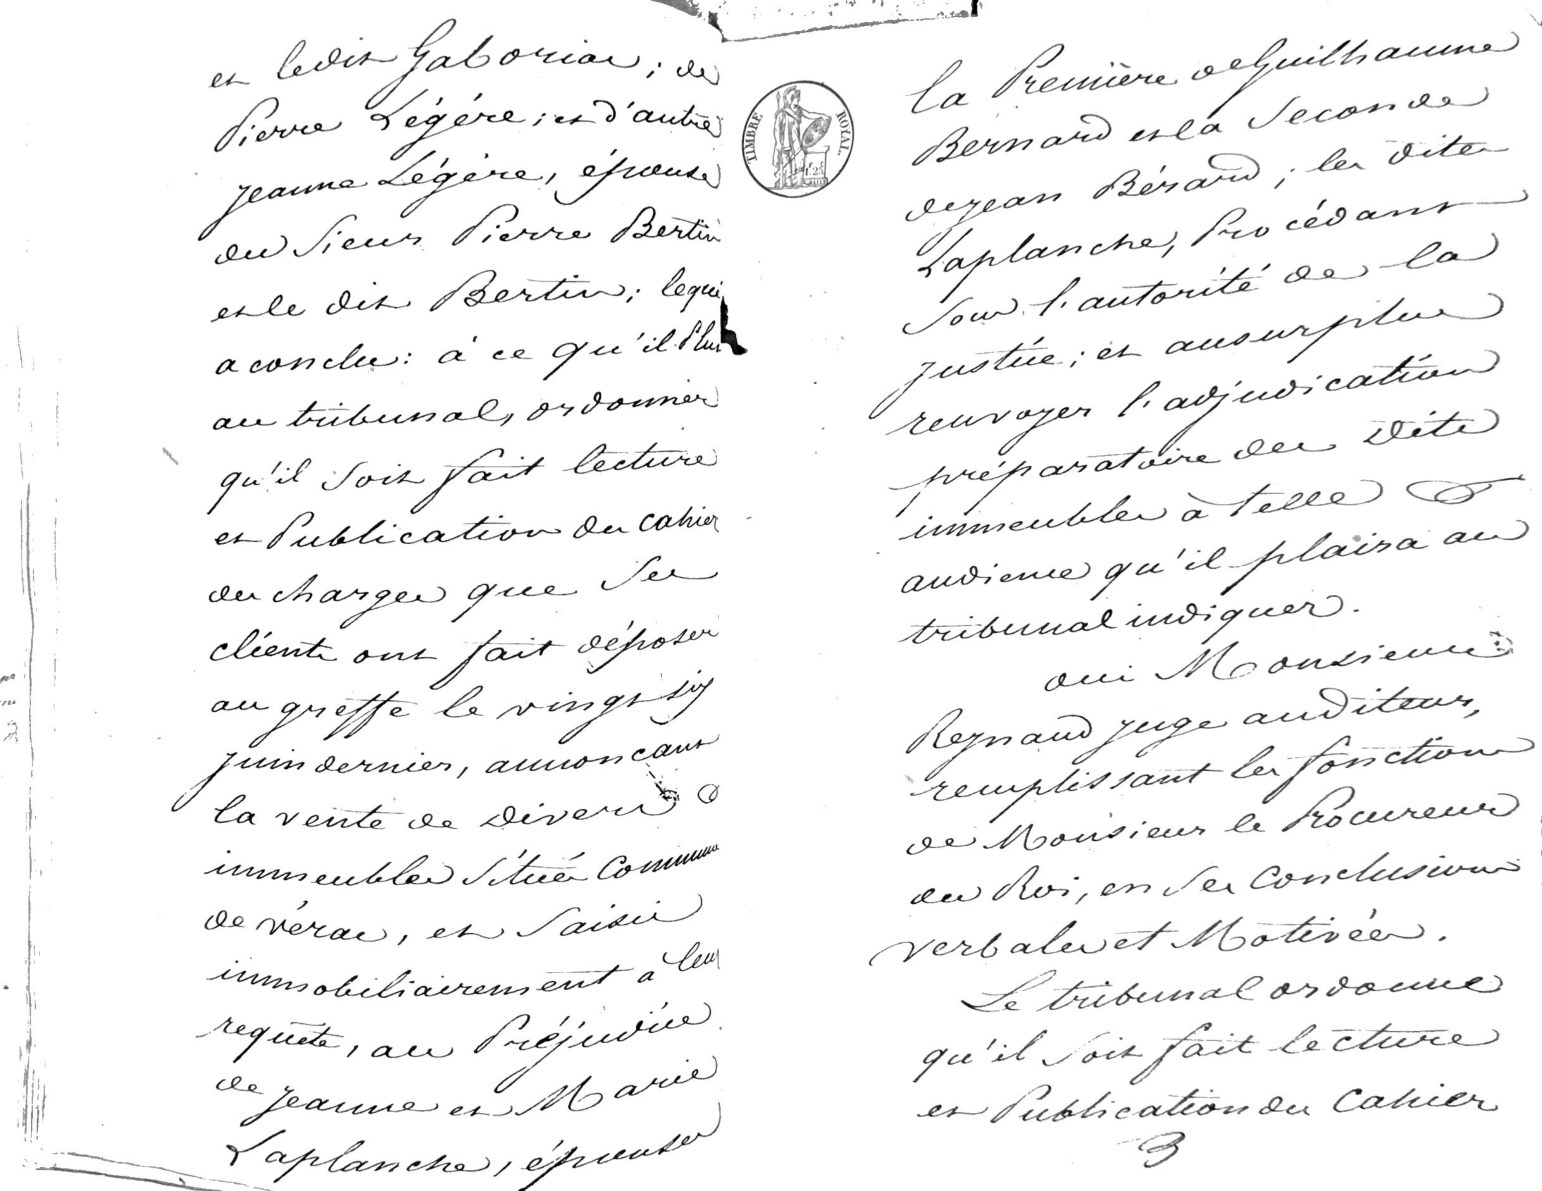 et ledit Gaboriau ; de
Pierre Légére ; et d'autre
Jeanne Légére, épouse
du Sieur Pierre Bertin
et le dit Bertin ; lequel
a conclu : à ce qu'il Plut
au tribunal, ordonner
qu'il Soit fait lecture
et Publication du Cahier
des charges que Ses
clients ont fait déposer
au greffe le vingt six
juin dernier, annonçant
la vente de divers
immeubles Situés Commune
de vérac, et Saisis
immobiliairement à leur
requête, au Préjudice
de Jeanne et Marie
Laplanche, épouses
TIMBRE ROYAL.
la Premiére de Guilhaume
Bernard et la Seconde
de Jean Bérard ; les dites
Laplanche, Procédant
Sous l'autorité de la
justice ; et au surplus
renvoyer l'adjudication
préparatoire des dits
immeubles à telle
audience qu'il plaira au
tribunal indiquer.
oui Monsieur
Reynaud juge auditeur,
remplissant les fonctions
de Monsieur le Procureur
du Roi, en Ses Conclusions
verbales et Motivées.
Le tribunal ordonne
qu'il Soit fait lecture
et Publication du Cahier
3